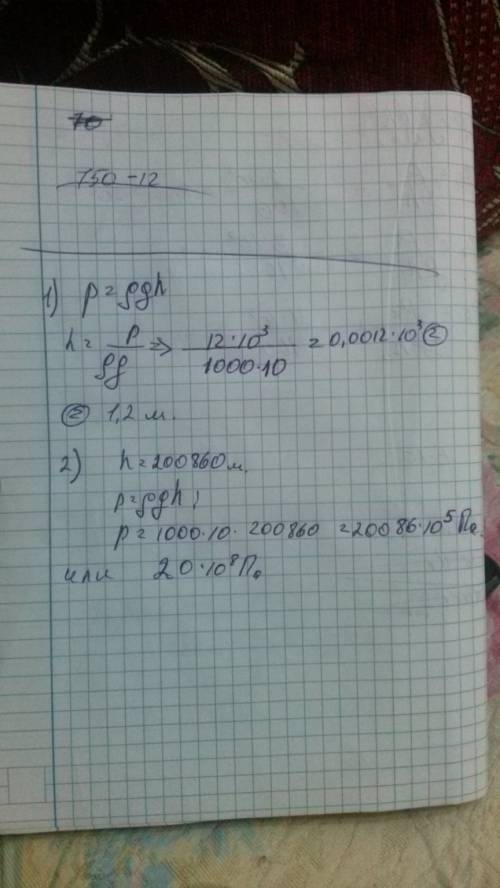 70
750-12
1) p=ρgh
h= p/ρg => 12·10³/1000·10 = 0,0012·10³ =
= 1,2 м.
2) h=200860м.
p=ρgh;
p=1000·10·200860 =20086·10⁵Па.
или 20·10⁸Па